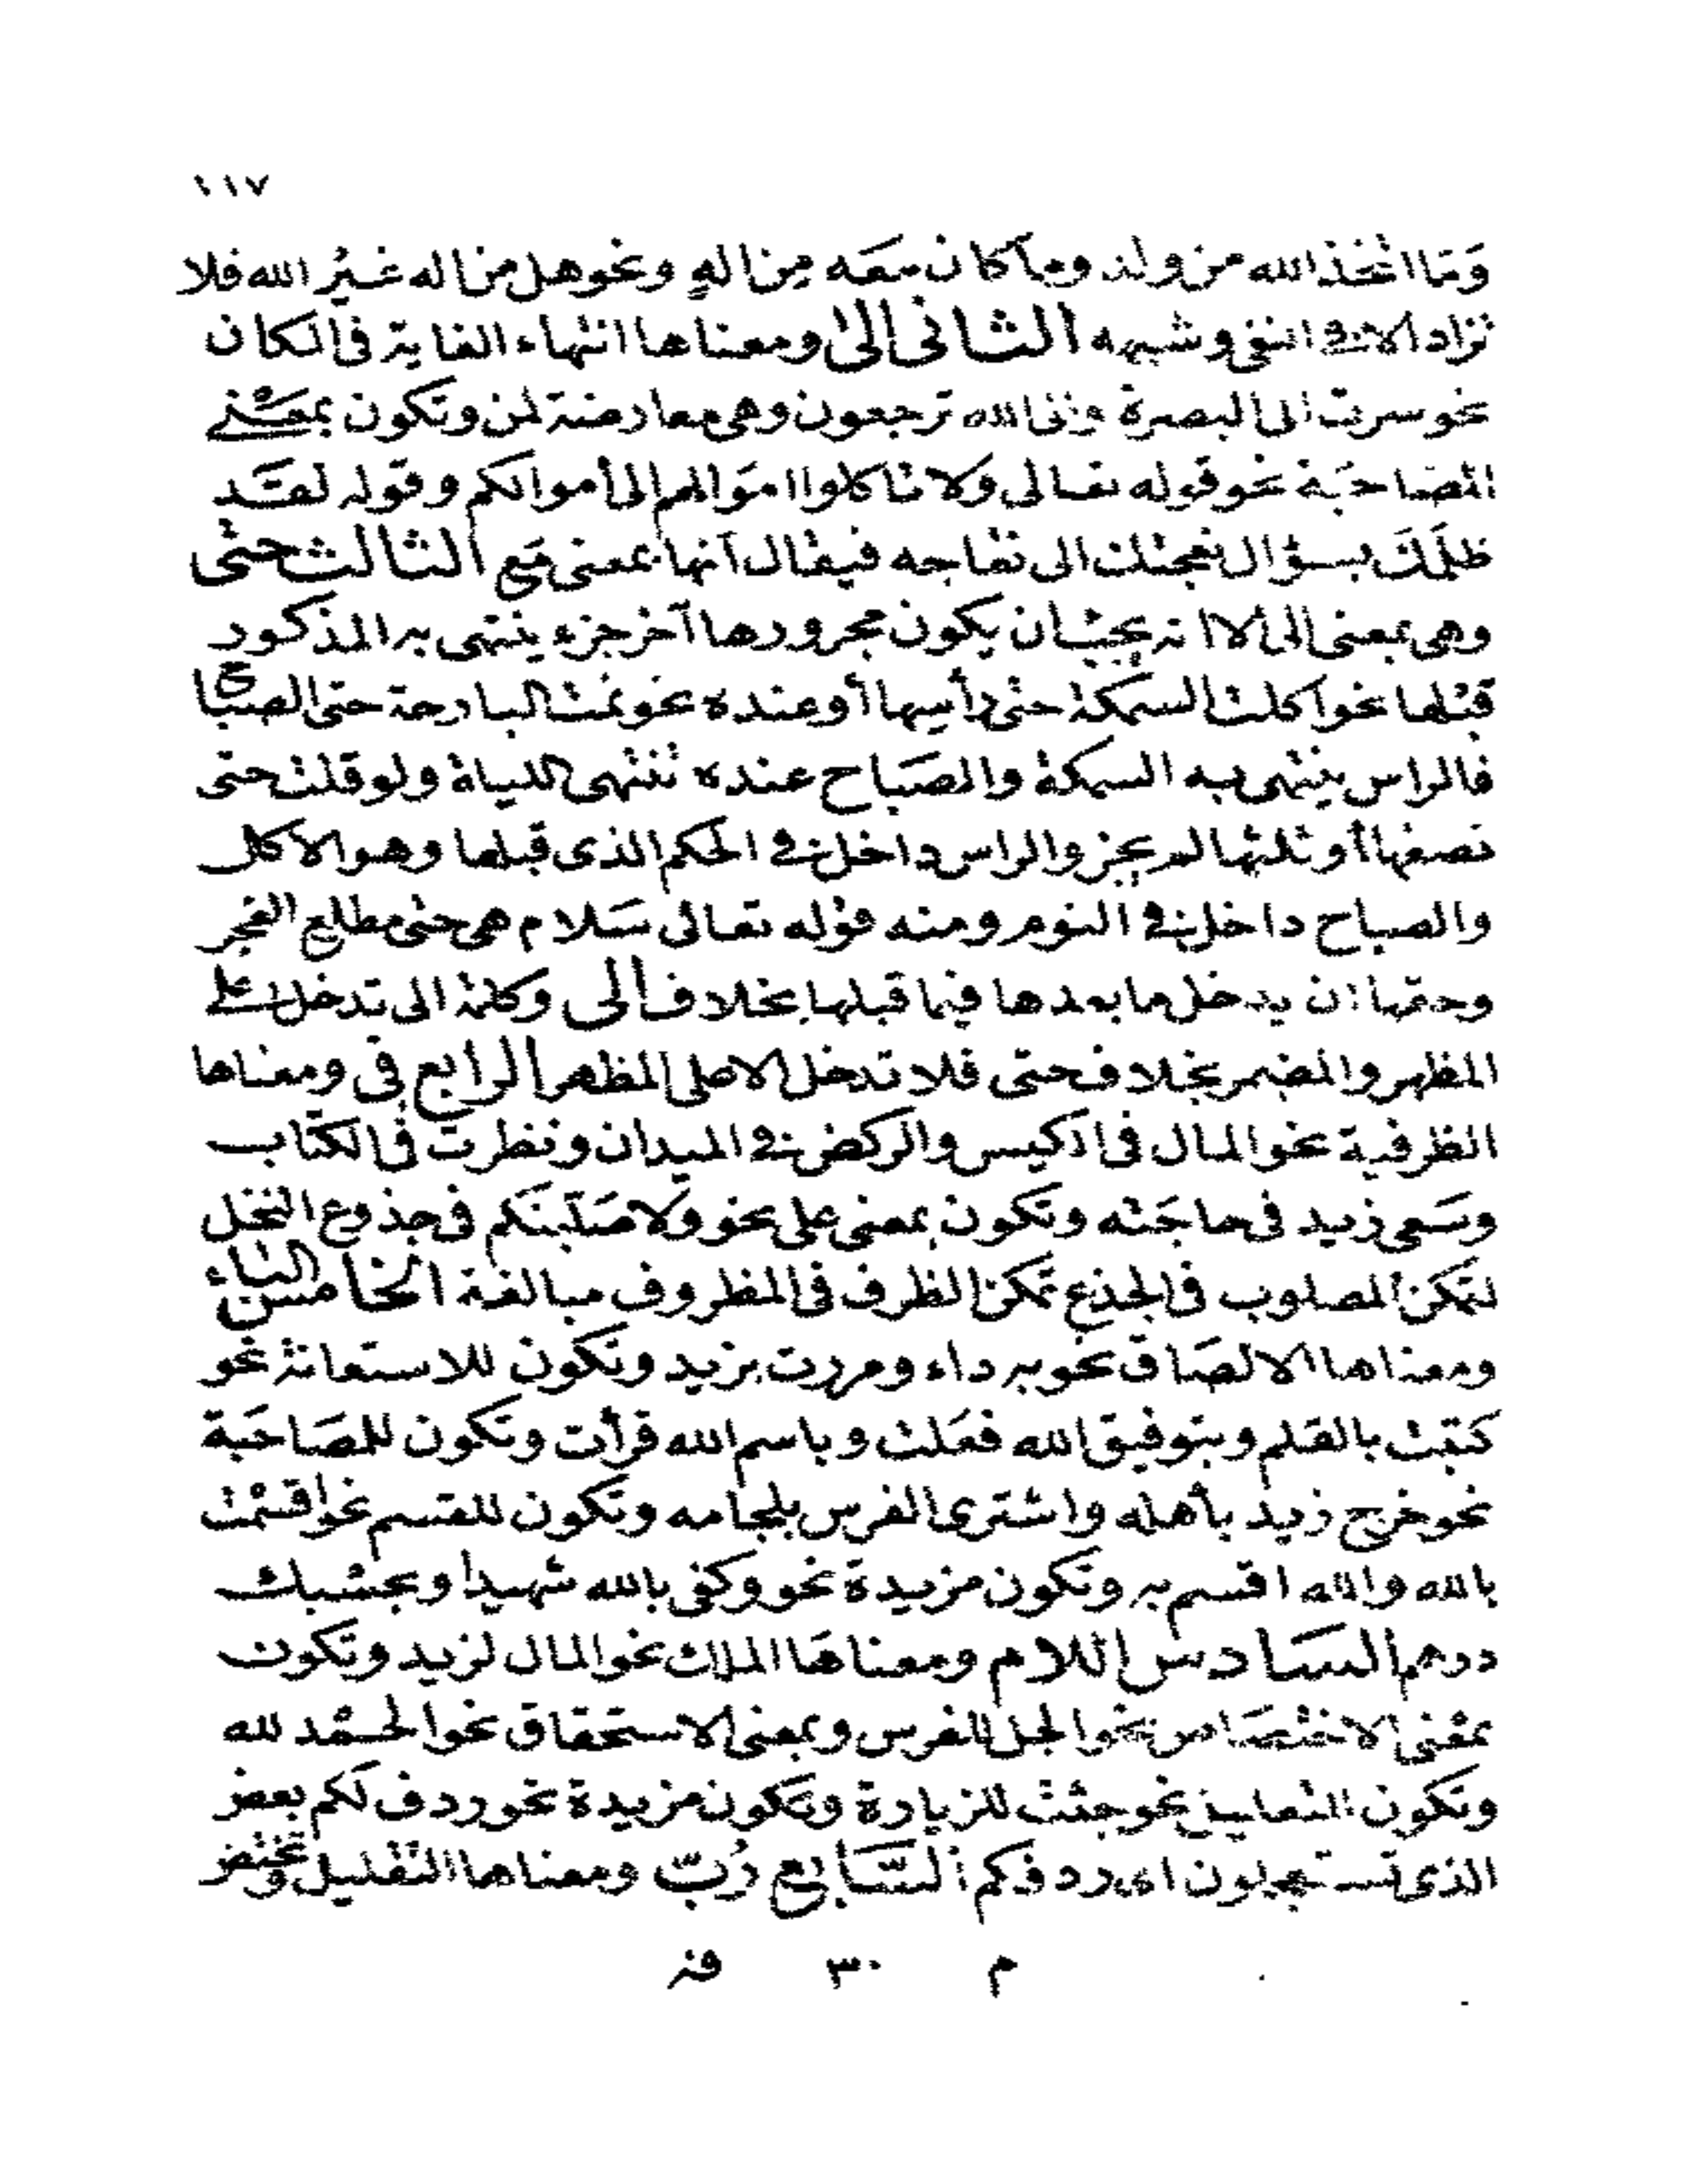 ١١٧
وَمَا اتَّخَذَ الله من ولد وما كان معَه مِن الهٍ ونحو هل من اله غيرُ الله فلا
تزاد الا فى النفى وشبهه الثانى الىٰ ومعناها انتهاء الغاية فى المكان
نحو سرت الى البصرة والى الله ترجعون وهى معارضة لمن وتكون بمعنى
المصاحَبة نحو قوله تعالى وَلا تاكلوا امْوَالهم الى أموالكم وقوله لقَد
ظلَمَكَ بسؤال نعجتك الى نعاجه فيقال انها بمعنى مَع الثالث حتى
وهى بمعنى الى الا انه يجب ان يكون مجرورها آخر جزء ينتهى به المذكور
قبْلها نحو اكلت السمكة حتى رأسِها أو عنده نحو نمت البارحة حتى الصباح
فالراس ينتهى به السمكة والصَبَاح عنده تنتهى الليلة ولو قلت حتى
نصفها أو ثلثها لم يجز والراس داخل فى الحكم الذى قبلها وهو الاكل
والصباح داخل فى النوم ومنه قوله تعالى سَلام هى حتى مطلع الفجر
وحقها ان يدخل ما بعدها فيما قبلها بخلاف الى وكلمة الى تدخل على
المظهر والمضمر بخلاف حتى فلا تدخل الا على المظهر الرابع فى ومعناها
الظرفية نحو المال فى الكيس والركض فى الميدان ونظرت فى الكتاب
وسَعى زيد فى حاجَته وتكون بمعنى على نحو ولاصَلّبنَكم فى جذوع النخل
لتمكن المصلوب فى الجذع تمكن الظرف فى المظروف مبالغة الخامس الباء
ومعناها الالصَاق نحو به داء ومررت بزيد وتكون للاستعانة نحو
كتبت بالقلم وبتوفيق الله فعَلت وباسم الله قرأت وتكون للمصَاحَبة
نحو خرج زيد بأهله واشترى الفرس بلجامه وتكون للقسم نحو اقسمْت
بالله والله اقسم به وتكون مزيدة نحو وكفى بالله شهيدا وبحسْبك
درهم السَادس اللام ومعناهَا الملك نحو المال لزيد وتكون
بمعْنى الاختصَاص نحو الجل للفرس وبمعنى الاستحقاق نحو الحمْد لله
وتكون للتعليل نحو جئت للزيارة وتكون مزيدة نحو ردف لكم بعض
الذى تستعجلون اى ردفكم السَّابع رُبّ ومعناها التقليل وتختص
م ٣٠ فـ